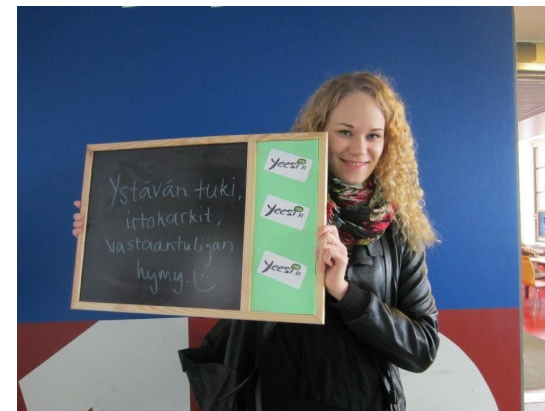 Ystävän tuki,
irtokarkit,
vastaantulijan
hymy. :)
Yeesi.fi
Yeesi.fi
Yeesi.fi